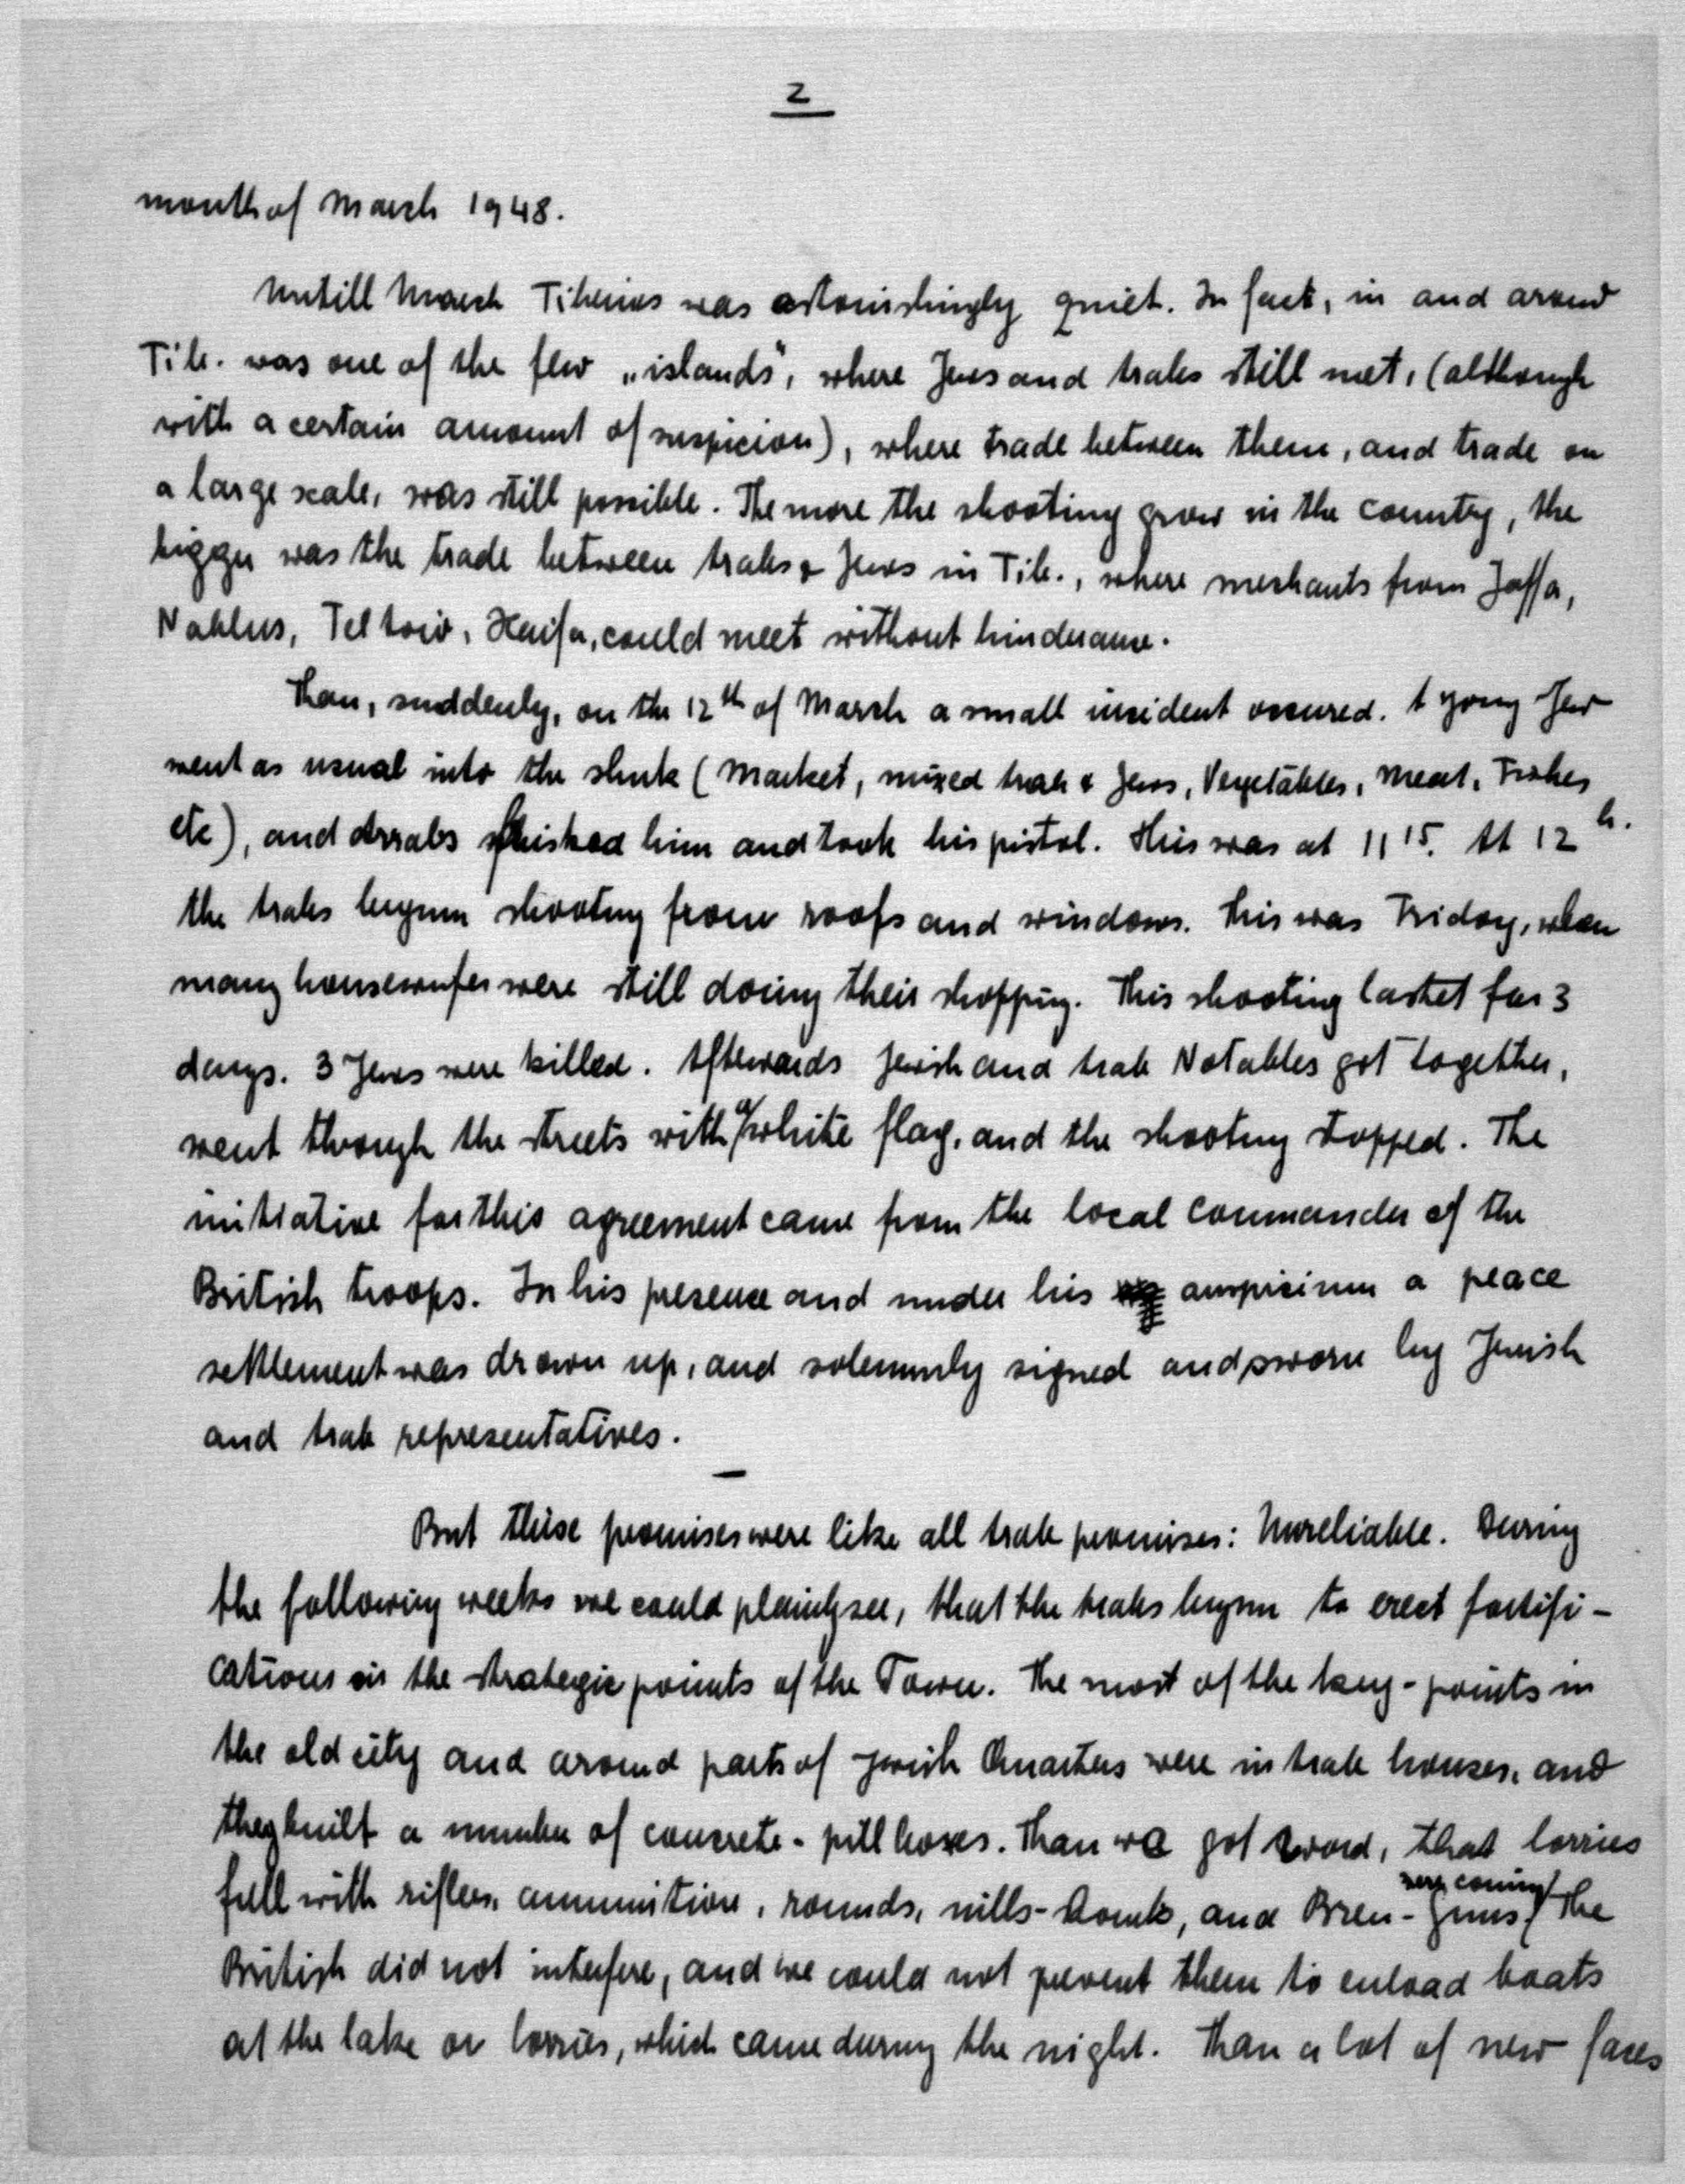 2
month of March 1948.
Untill March Tiberias was astonishingly quiet. In fact, in and around
Tib. was one of the few „islands", where Jews and Arabs still met, (although
with a certain amount of suspicion), where trade between them, and trade on
a large scale, was still possible. The more the shooting grow in the country, the
bigger was the trade between Arabs & Jews in Tib., where merhants from Jaffa,
Nablus, Tel Aviv, Haifa, could meet without hinderance.
Than, suddenly, on the 12th of March a small insident occured. A yong Jew
went as usual into the shuk (Market, mixed Arab & Jews, Vegetables, Meat, Fishes
etc), and Arrabs him and took his pistol. This was at 11 15. At 12 h.
the Arabs begunn shooting from roofs and windows. This was Friday, when
many housewifes were still doing their shopping. This shooting lastet for 3
days. 3 Jews were killed. Afterwards Jewish and Arab Notables got together,
went through the streets with a white flag, and the shooting stopped. The
initiative for this agreement came from the local commander of the
British troops. In his presence and under his auspicium a peace
settlement was drawn up, and solemnly signed and sworn by Jewish
and Arab representatives.
But these promises were like all Arab promises: Unreliable. During
the following weeks we could plainly see, that the Arabs begunn to erect fortifi-
cations in the strategic points of the Town. The most of the key-points in
the old city and around parts of Jewish Quarters were in Arab houses, and
they built a number of concrete-pillboxes. Than we got word, that lorries
full with rifles, ammunition, rounds, mills-bombs, and Bren-guns were coming. The
British did not interfere, and we could not prevent them to enload boats
at the lake or lorries, which came during the night. Than a lot of new faces